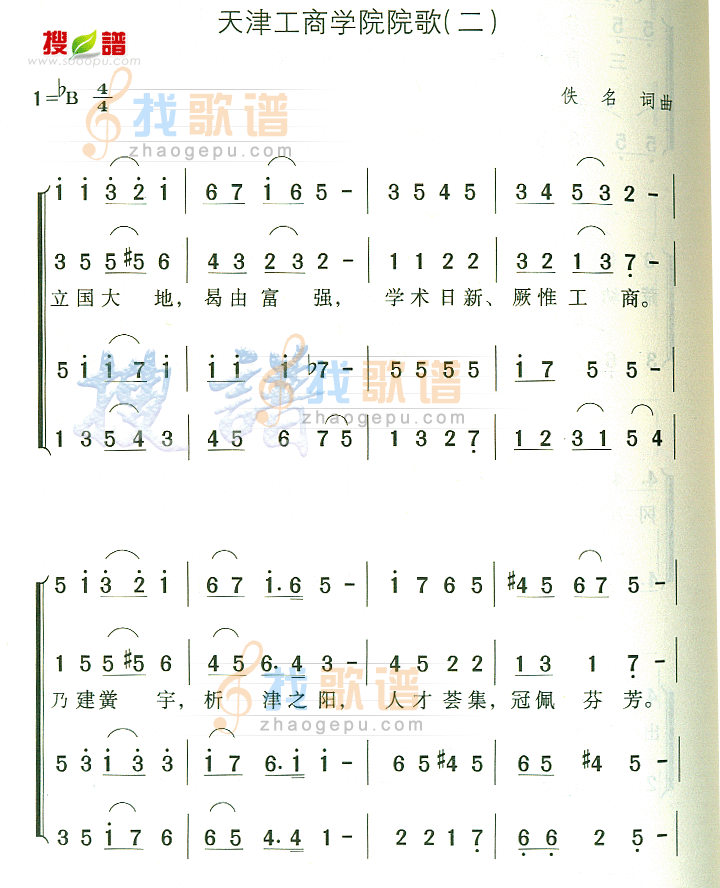 天津工商学院院歌(二)
搜譜
www.sooopu.com
1=♭B 4/4
佚名 词曲
找歌谱
zhaogepu.com
i i 3̇ 2̇ i | 6 7 i 6 5 - | 3 5 4 5 | 3 4 5 3 2 - |
3 5 5 #5 6 | 4 3 2 3 2 - | 1 1 2 2 | 3 2 1 3 7̣ - |
立国大地，曷由富强，学术日新、厥惟工商。
5 i i 7 i | i i i ♭7 - | 5 5 5 5 | i 7 5 5 - |
搜譜
找歌谱
zhaogepu.com
1 3 5 4 3 | 4 5 6 7 5 | 1 3 2 7̣ | 1 2 3 1 5 4 |
5 i 3̇ 2̇ i | 6 7 i. 6 5 - | i 7 6 5 | #4 5 6 7 5 - |
1 5 5 #5 6 | 4 5 6. 4 3 - | 4 5 2 2 | 1 3 1 7̣ - |
乃建黉宇，析津之阳，人才荟集，冠佩芬芳。
找歌谱
zhaogepu.com
5 3̇ i 3̇ 3̇ | i 7 6. i i - | 6 5 #4 5 | 6 5 #4 5 - |
3 5 i 7 6 | 6 5 4. 4 1 - | 2 2 1 7̣ | 6̣ 6̣ 2 5̣ - |